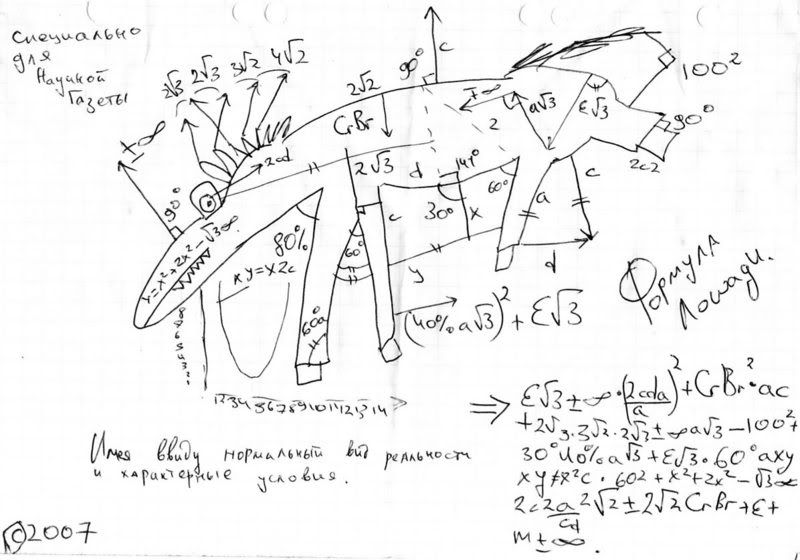 Специально
для
Научной
Газеты
2√3 2√3 3√2 4√2
± ∞
90°
2cd
2√2
90°
c
CrBr
2√3
d
±∞
2
a√3
ε√3
100²
90°
2c2
141°
30°
60°
x
a
c
d
y
c
60°
80%
xy=x2c
60a
y=x²+2x²-√3∞
(40%a√3)²+ε√3
Формула
лошади.
1 2 3 4 5 6 7 8 9 10 11 12 13 14
⇒ ε√3±∞·(2cda/a)²+CrBr²·ac
+2√3·3√2·2√3±∞a√3-100²+
30°40%a√3+ε√3·60°axy
xy≠x²c·60²+x²+2x²-√3∞
2c2a²√2±2√2CrBr+ε+
cd
m±∞.
Имея ввиду нормальный вид реальности
и характерные условия.
©2007